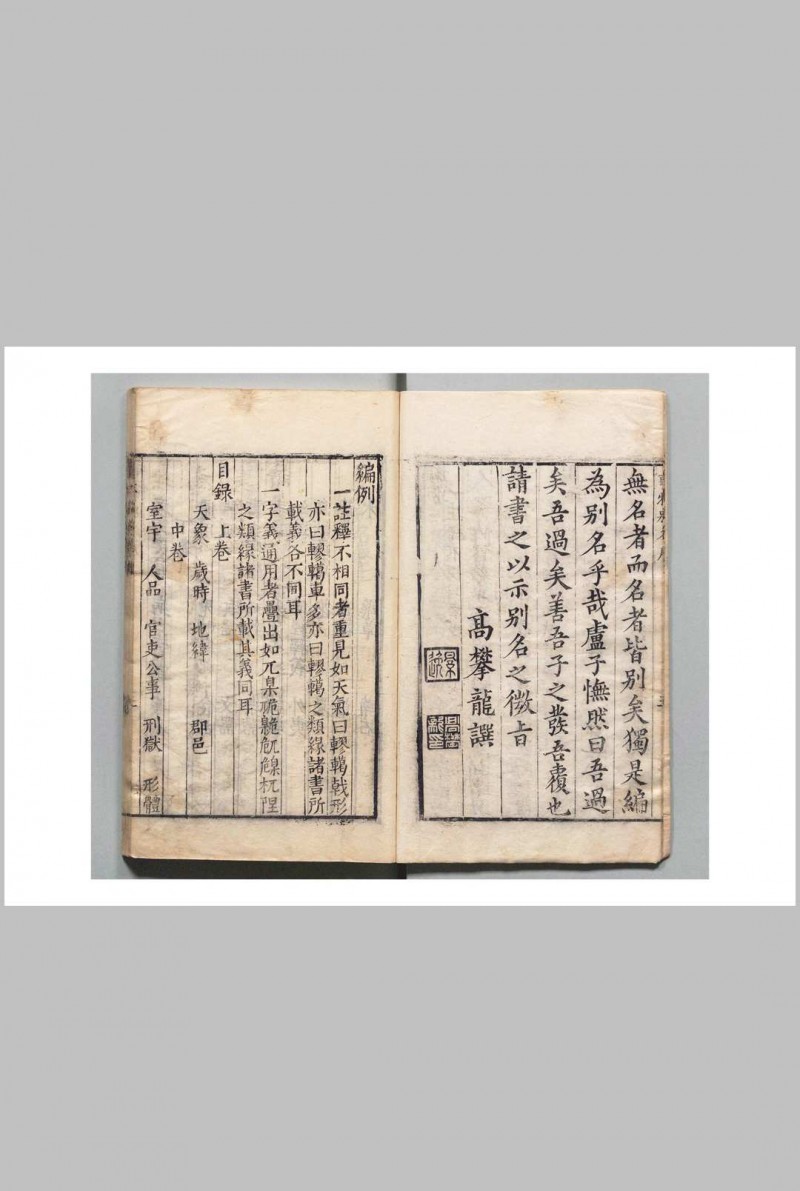 無名者而名者皆别矣獨是編
為别名乎哉盧子憮然曰吾過
矣吾過矣善吾子之發吾覆也
請書之以示别名之微旨
高攀龍譔
景逸
高攀龍印
編例
一註釋不相同者重見如天氣曰轇轕戟形
亦曰轇轕車多亦曰轇轕之類緣諸書所
載義各不同耳
一字義通用者疊出如兀臬
之類緣諸書所載其義同耳
目錄
上卷
天象 歲時 地緯 郡邑
中卷
室宇 人品 官吏公事 刑獄 形體